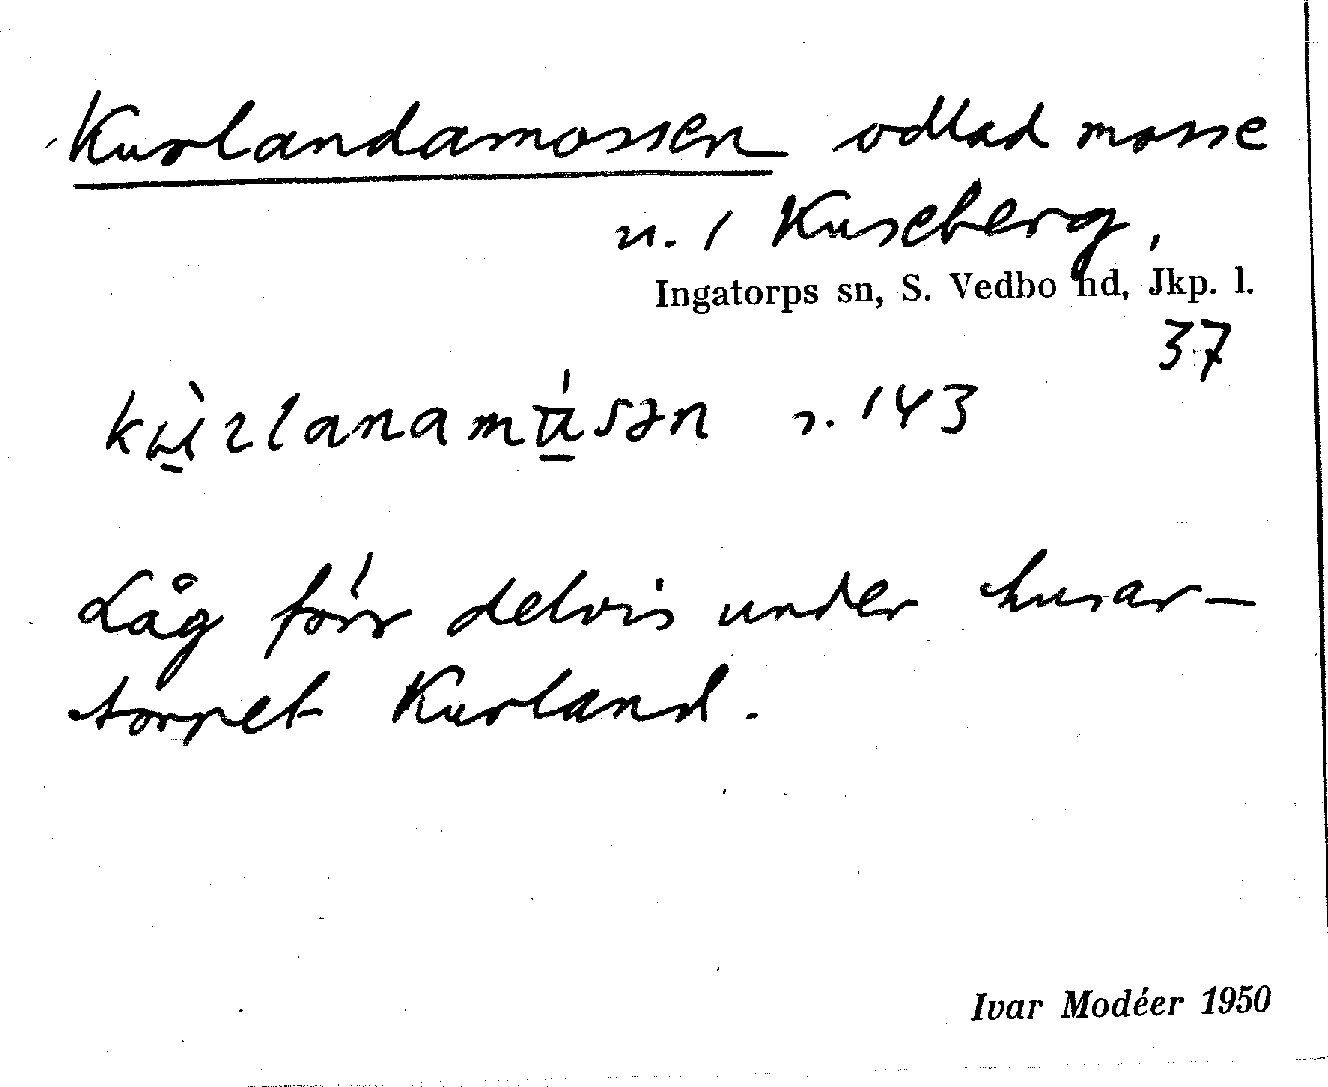 Kurlandamossen odlad mosse
u. / Kuseberg,
Ingatorps sn, S. Vedbo hd, Jkp. l.
37
s. 143
Låg förr delvis under husar-
torpet Kurland.
Ivar Modéer 1950